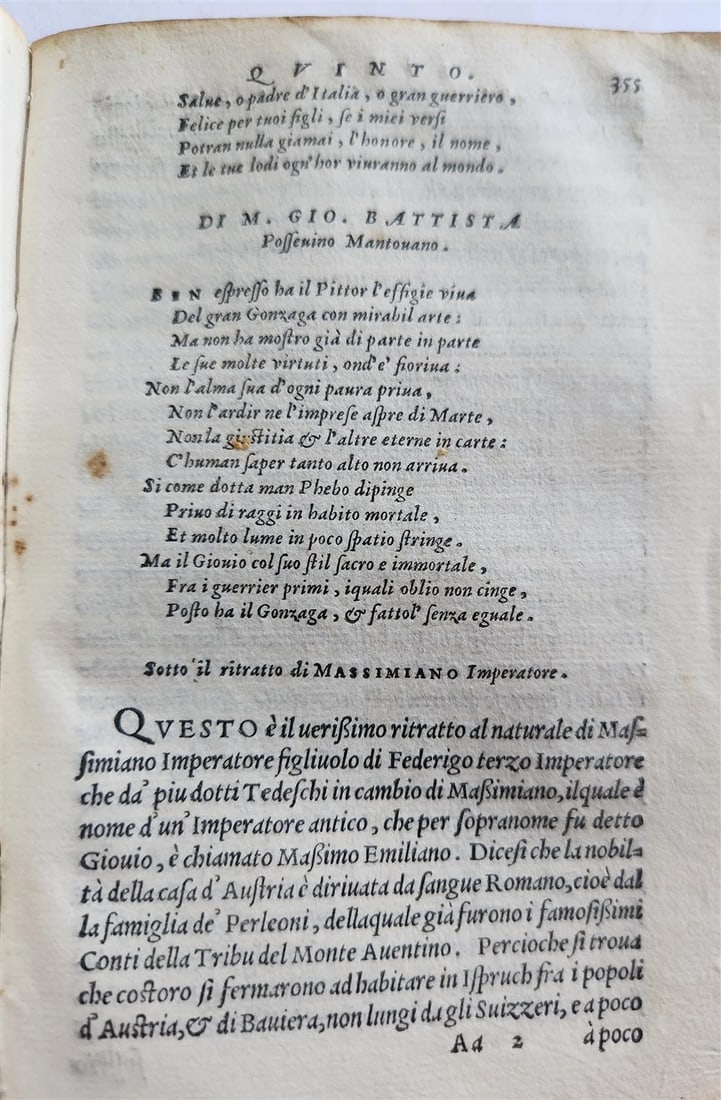 QVINTO. 355
Salue, o padre d'Italia, o gran guerriero,
Felice per tuoi figli, ſe i miei verſi
Potran nulla giamai, l'honore, il nome,
Et le tue lodi ogn'hor viuranno al mondo.
DI M. GIO. BATTISTA
Poſſeuino Mantouano.
BEN eſpreſſo ha il Pittor l'effigie viua
Del gran Gonzaga con mirabil arte:
Ma non ha moſtro già di parte in parte
Le ſue molte virtuti, ond'e' fioriua:
Non l'alma ſua d'ogni paura priua,
Non l'ardir ne l'impreſe aſpre di Marte,
Non la giuſtitia & l'altre eterne in carte:
C'human ſaper tanto alto non arriua.
Si come dotta man Phebo dipinge
Priuo di raggi in habito mortale,
Et molto lume in poco ſpatio ſtringe.
Ma il Giouio col ſuo ſtil ſacro e immortale,
Fra i guerrier primi, iquali oblio non cinge,
Poſto ha il Gonzaga, & fattol' ſenza eguale.
Sotto il ritratto di MASSIMIANO Imperatore.
QVESTO è il ueriſsimo ritratto al naturale di Maſ=
ſimiano Imperatore figliuolo di Federigo terzo Imperatore
che da' piu dotti Tedeſchi in cambio di Maßimiano, ilquale è
nome d'un' Imperatore antico, che per ſopranome fu detto
Giouio, è chiamato Maßimo Emiliano. Diceſi che la nobil=
tà della caſa d'Auſtria è diriuata da ſangue Romano, cioè dal
la famiglia de' Perleoni, dellaquale già furono i famoſiſsimi
Conti della Tribu del Monte Auentino. Percioche ſi troua
che coſtoro ſi fermarono ad habitare in Iſpruch fra i popoli
d'Auſtria, & di Bauiera, non lungi da gli Suizzeri, e a poco
Aa 2 à poco